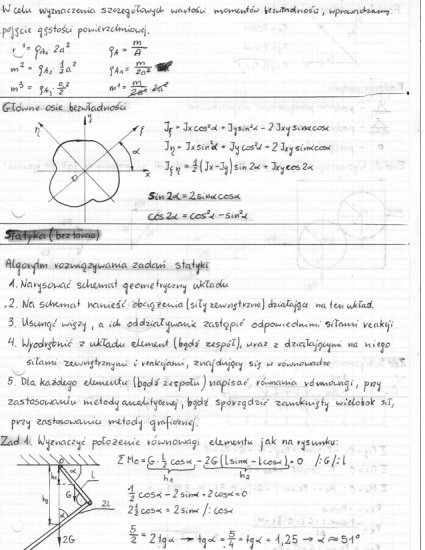 W celu wyznaczenia szczegółowych wartości momentów bezwładności, wprowadzamy
pojęcie gęstości powierzchniowej.
= ρA₁ · 2a²   ρA = m/A
m² = ρA₂ · ½a²   ρA₁ = m/2a²
m³ = ρA₃ · a²/2   m¹ = m/2a² · 2a²
Główne osie bezwładności
η y ξ
α
x
0
Jξ = Jxcos²α + Jysin²α - 2Jxysinαcosα
Jη = Jxsin²α + Jycos²α + 2Jxysinαcosα
Jξη = ½(Jx-Jy)sin2α + Jxycos2α
sin2α = 2sinαcosα
cos2α = cos²α - sin²α
Statyka (bez tarcia)
Algorytm rozwiązywania zadań statyki
1. Narysować schemat geometryczny układu
2. Na schemat nanieść obciążenia (siły zewnętrzne) działające na ten układ.
3. Usunąć więzy, a ich oddziaływanie zastąpić odpowiednimi siłami reakcji
4. Wyodrębnić z układu element (bądź zespół), wraz z działającymi na niego
siłami zewnętrznymi i reakcjami, znajdujący się w równowadze
5. Dla każdego elementu (bądź zespołu) napisać równania równowagi, przy
zastosowaniu metody analitycznej, bądź sporządzić zamknięty wielobok sił,
przy zastosowaniu metody graficznej.
Zad 1. Wyznaczyć położenie równowagi elementu jak na rysunku:
ΣMo = G·½cosα - 2G(lsinα - lcosα) = 0 /:G/:l
h₁ h₂
0 α
h₁ l
G
h₂ α 2l
2G
½cosα - 2sinα + 2cosα = 0
2½cosα = 2sinα /:cosα
5/2 = 2tgα → tgα = 5/4 = tgα = 1,25 → α ≈ 51°